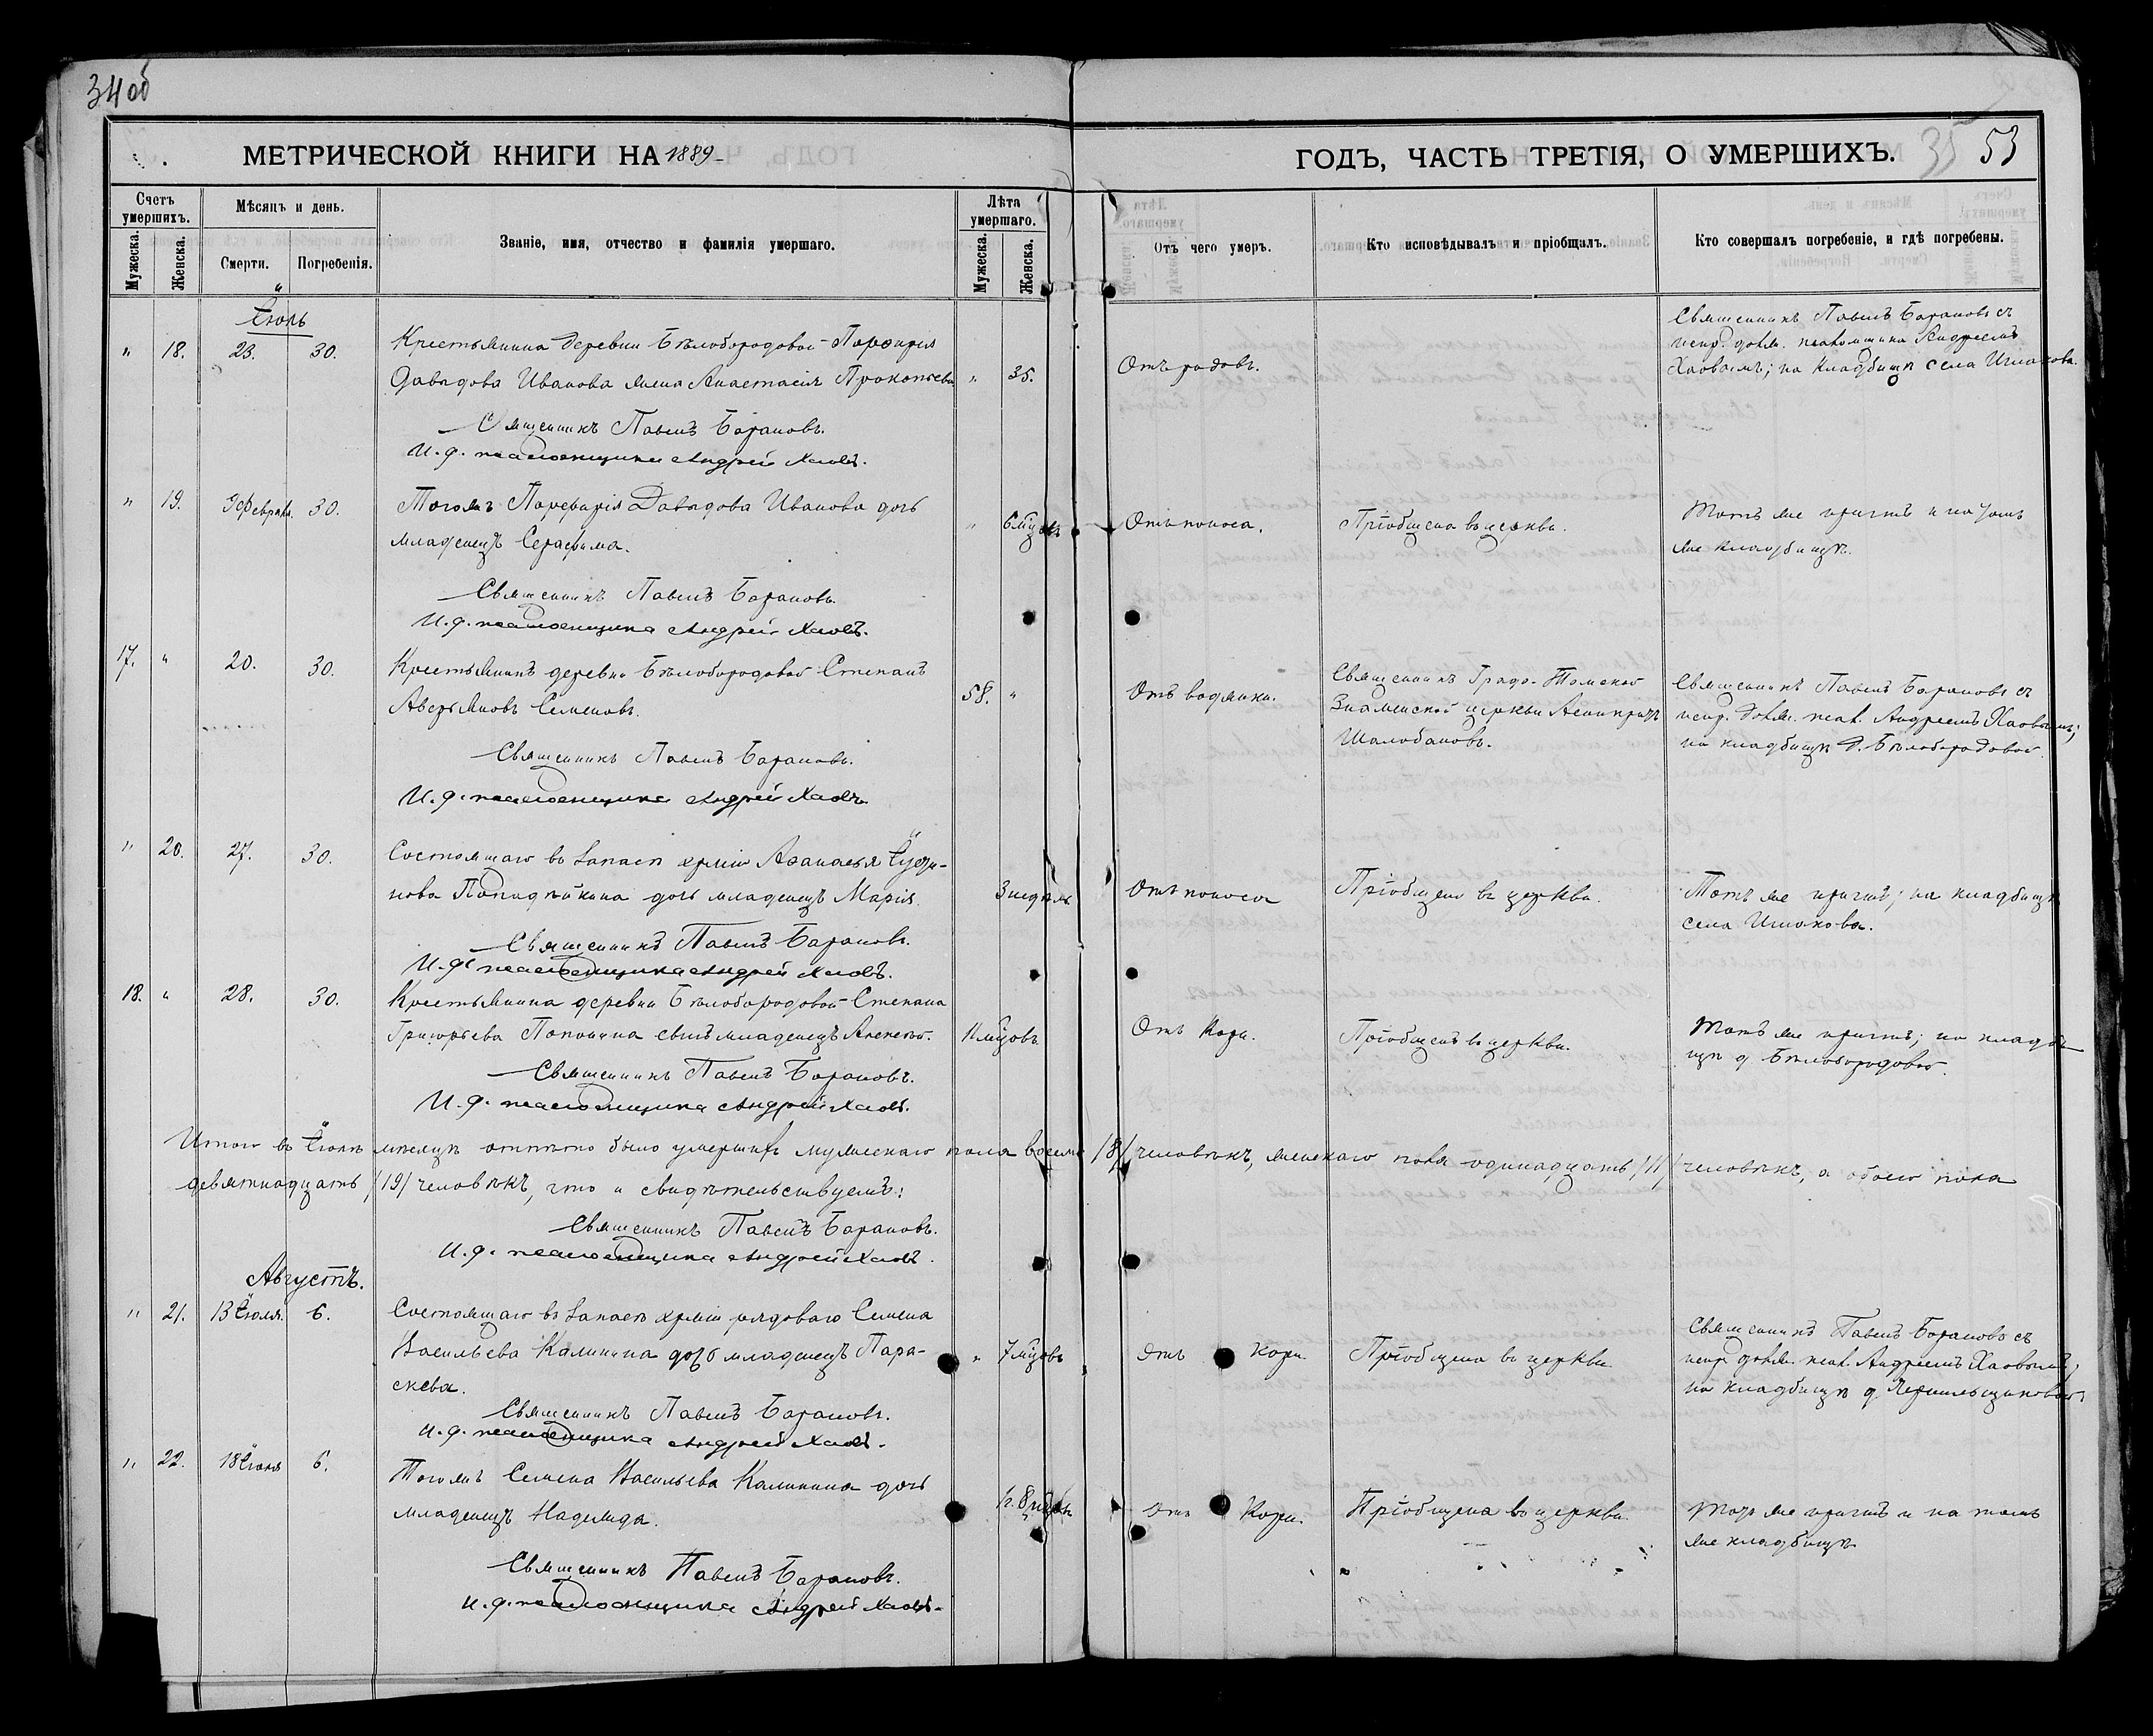 34 об
МЕТРИЧЕСКОЙ КНИГИ НА 1889
ГОДЪ, ЧАСТЬ ТРЕТІЯ, О УМЕРШИХЪ.
35 53
Счетъ умершихъ.
Мужеска.
Женска.
Мѣсяцъ и день.
Смерти.
Погребенія.
Званіе, имя, отчество и фамилія умершаго.
Лѣта умершаго.
Мужеска.
Женска.
Отъ чего умеръ.
Кто исповѣдывалъ и пріобщалъ.
Кто совершалъ погребеніе, и гдѣ погребены.
Іюль
" 18. 23. 30.
Крестьянина деревни Бѣлобородовой Порфирія
Давыдова Иванова жена Анастасія Прокопьева
" 35.
Отъ родовъ.
Священникъ Павелъ Барановъ съ
испр. должн. псаломщика Андреемъ
Хаовымъ; на кладбищѣ села
Священникъ Павелъ Барановъ.
И. д. псаломщика Андрей Хаовъ.
" 19. 9 Февраля. 30.
Тогожъ Порфирія Давыдова Иванова дочь
младенецъ Серафима.
" 6 мцовъ
Отъ поноса.
Пріобщена въ церкви.
Тотъ же причтъ и на томъ
же кладбищѣ.
Священникъ Павелъ Барановъ.
И. д. псаломщика Андрей Хаовъ.
17. " 20. 30.
Крестьянинъ деревни Бѣлобородовой Степанъ
Аверьяновъ Семеновъ.
58. "
Отъ водянки.
Священникъ Градо-Томской
Знаменской церкви
Священникъ Павелъ Барановъ съ
испр. должн. псал. Андреемъ Хаовымъ;
на кладбищѣ д. Бѣлобородовой.
Священникъ Павелъ Барановъ.
И. д. псаломщика Андрей Хаовъ.
" 20. 27. 30.
Состоящаго въ запасѣ арміи Аѳанасья
нова дочь младенецъ Марія.
3 недѣль
Отъ поноса
Пріобщена въ церкви.
Тотъ же причтъ; на кладбищѣ
села
Священникъ Павелъ Барановъ.
И. д. псаломщика Андрей Хаовъ.
18. " 28. 30.
Крестьянина деревни Бѣлобородовой Степана
Григорьева сынъ младенецъ Алексѣй.
11 мцовъ.
Отъ кори.
Пріобщенъ въ церкви.
Тотъ же причтъ; на кладби
щѣ д. Бѣлобородовой.
Священникъ Павелъ Барановъ.
И. д. псаломщика Андрей Хаовъ.
Итого въ Іюлѣ мѣсяцѣ отпѣто было умершихъ мужескаго пола восемь /8/ человѣкъ, женскаго пола одинадцать /11/ человѣкъ, а обоего пола
девятнадцать /19/ человѣкъ, что и свидѣтельствуемъ:
Священникъ Павелъ Барановъ.
И. д. псаломщика Андрей Хаовъ.
Августъ.
" 21. 13 Іюля. 6.
Состоящаго въ запасѣ арміи рядоваго Семена
Васильева Калинина дочь младенецъ Пара-
скева.
" 7 мцовъ
Отъ кори.
Пріобщена въ церкви.
Священникъ Павелъ Барановъ съ
испр. должн. псал. Андреемъ Хаовымъ;
на кладбищѣ д.
Священникъ Павелъ Барановъ.
И. д. псаломщика Андрей Хаовъ.
" 22. 18 Іюля 6.
Тогожъ Семена Васильева Калинина дочь
младенецъ Надежда.
1 г. 8 мцовъ
Отъ кори.
Пріобщена въ церкви.
Тотъ же причтъ и на томъ
же кладбищѣ
Священникъ Павелъ Барановъ.
И. д. псаломщика Андрей Хаовъ.